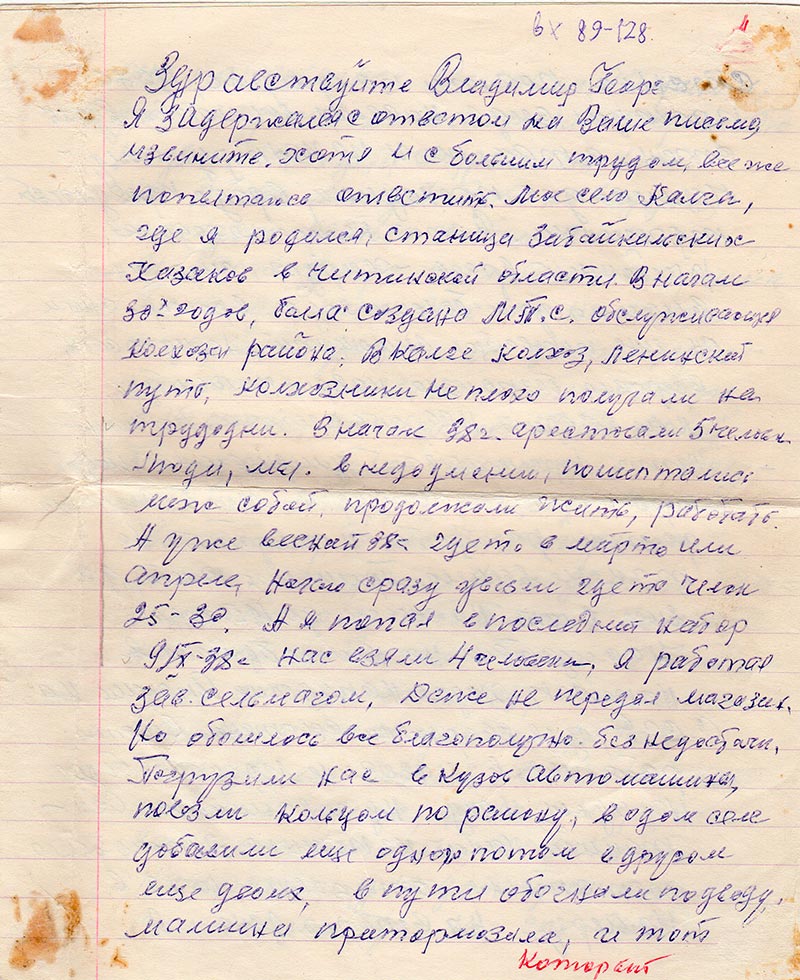 вх 89-128.
Здравствуйте Владимир Георг
Я задержался с ответом на Ваше письмо,
извините. хотя и с большим трудом, все же
попытаюсь ответить. Мое село Калга,
где я родился, станица Забайкальских
Казаков в Читинской области. В начале
30х годов, была создана М.Т.С. обслуживающая
колхозы района. В Калге колхоз, Ленинский
путь, колхозники не плохо получали на
трудодни. В начале 38г. арестовали 5 человек
Люди, в недоумении, пошептались
меж собой, продолжали жить, работать.
А уже весной 38г где то в марте или
апреле, ночью сразу увезли где то челов
25-30. А я попал в последний набор
9/IX-38г нас взяли 4 человека, я работал
зав. сельмагом, Даже не передал магазин.
Но обошлось все благополучно. без недостачи.
Погрузили нас в кузов автомашины,
повезли кольцом по району, в одом селе
добавили еще одного потом в другом
еще двоих, в пути обогнали подводу,
машина притормозила, и тот
который